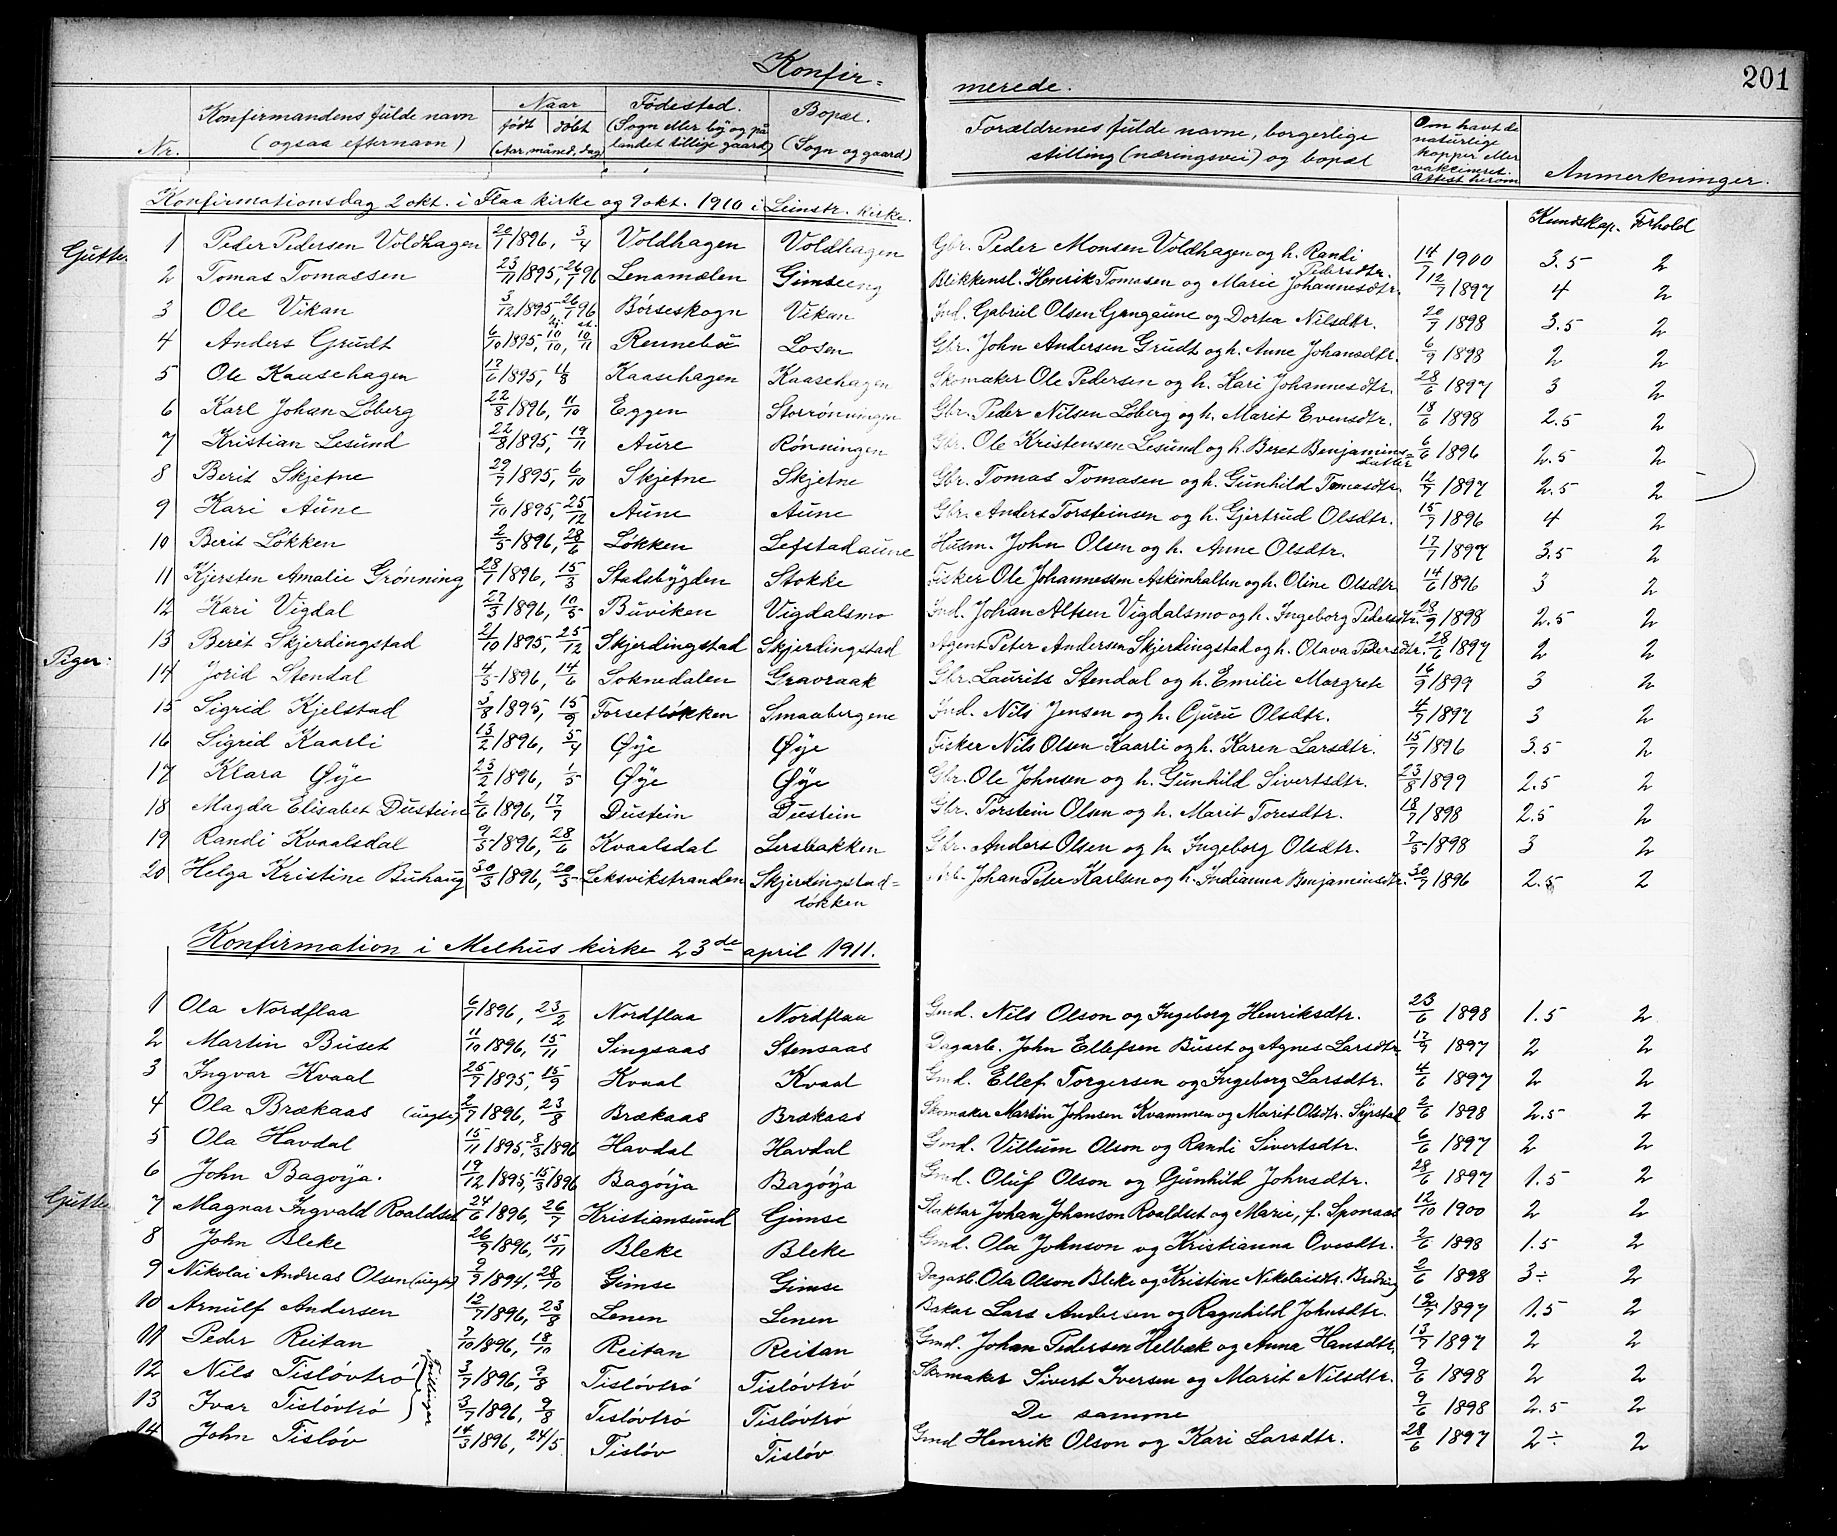 201
Konfirmerede.
Nr. Konfirmandens fulde navn (ogsaa efternavn) Naar født døbt (Aar, måned, dag) Fødested. (Sogn eller by og på landet tillige gaard) Bopæl. (Sogn og gaard) Forældrenes fulde navne, borgerlige stilling (næringsvei) og bopæl Om havt de naturlige kopper eller vakcineret. Attest herom Anmerkninger.
Konfirmationsdag 2 okt. i Flaa kirke og 9 okt. 1910 i Leinstr. kirke. Kundskap. Forhold
Gutter. 1 Peder Pedersen Voldhagen 20/1 1896, 3/4 Voldhagen Voldhagen Gbr. Peder Monsen Voldhagen og h. Randi Pedersdtr. 14/7 1900 3.5 2
2 Tomas Tomassen 23/11 1895, 26/7 96 Lenamælen Gimseeng Blikkensl. Henrik Tomasen og Marie Johannesdtr. 12/7 1897 4 2
3 Ole Vikan 3/12 1895, 26/1 96 Børseskogn Vikan Ind. Gabriel Olsen Gangaune og Dortea Nilsdtr. 20/7 1898 3.5 2
4 Anders Grudt 6/10 1895, 10/10, 10/11 Rennebu Losen Gbr. John Andersen Grudt og h. Anne Johansdtr. 6/9 1898 2 2
5 Ole Kaasehagen 17/6 1895, 11/8 Kaasehagen Kaasehagen Skomaker Ole Pedersen og h. Kari Johannesdtr. 28/6 1897 3 2
6 Karl Johan Løberg 22/8 1896, 11/10 Eggen Storrønningen Gbr. Peder Nilsen Løberg og h. Marit Evensdtr. 18/6 1898 2.5 2
7 Kristian Lesund 22/8 1895, 19/11 Aure Rønningen Gbr. Ole Kristensen Lesund og h. Beret Benjaminsdatter 6/6 1896 2.5 2
8 Berit Skjetne 29/7 1895, 6/10 Skjetne Skjetne Gbr. Tomas Tomasen og h. Gunhild Tomasdtr. 12/7 1897 2.5 2
9 Kari Aune 6/10 1895, 25/12 Aune Aune Gbr. Anders Torsteinsen og h. Gjertrud Olsdtr. 15/7 1896 4 2
10 Berit Løkken 2/5 1896, 28/6 Løkken Lefstadaune Husm. John Olsen og h. Anne Olsdtr. 17/7 1897 3.5 2
11 Kjersten Amalie Grønning 28/1 1896, 15/3 Stadsbygden Stokke Fisker Ole Johannessen Askimhalten og h. Oline Olsdtr 14/6 1896 3 2
12 Kari Vigdal 27/3 1896, 10/5 Buviken Vigdalsmo Ind. Johan Altsen Vigdalsmo og h. Ingeborg Pedersdtr. 28/9 1898 2.5 2
Piger: 13 Berit Skjerdingstad 21/10 1895, 25/12 Skjerdingstad Skjerdingstad Agent Peter Andersen Skjerdingstad og h. Olava Pedersdtr. 28/6 1897 2 2
14 Jorid Stendal 4/5 1896, 14/6 Soknedalen Gravraak Gbr. Laurits Stendal og h. Emilie Margrete 16/9 1899 3 2
15 Sigrid Kjelstad 3/8 1895, 15/9 Forsetløkken Smaabergene Ind. Nils Jensen og h. Guru Olsdtr. 4/7 1897 3 2
16 Sigrid Kaarli 13/2 1896, 5/4 Øye Øye Fisker Nils Olsen Kaarli og h. Karen Larsdtr. 15/7 1896 3.5 2
17 Klara Øye 23/2 1896, 1/5 Øye Øye Gbr. Ole Johnsen og h. Gunhild Sivertsdtr. 23/8 1899 2.5 2
18 Magda Elisabet Dustein 2/6 1896, 17/7 Dustein Dustein Gbr. Torstein Olsen og h. Marit Toresdtr. 18/7 1898 2.5 2
19 Randi Kvaalsdal 9/5 1896, 28/6 Kvaalsdal Lersbakken Gbr. Anders Olsen og h. Ingeborg Olsdtr. 7/5 1898 3 2
20 Helga Kristine Buhaug 30/3 1896, 20/5 Leksvikstranden Skjerdingstadløkken Arb. Johan Peter Karlsen og h. Indianna Benjaminsdtr. 30/7 1896 2.5 2
Konfirmation i Melhus kirke 23de april 1911.
1 Ola Nordflaa 6/1 1896, 23/2 Nordflaa Nordflaa Gmd. Nils Olson og Ingeborg Henriksdtr. 23/6 1898 1.5 2
2 Martin Buset 11/10 1896, 15/11 Singsaas Stensaas Dagarb. John Ellefsen Buset og Agnes Larsdtr 17/9 1897 2 2
3 Ingvar Kvaal 25/7 1895, 15/9 Kvaal Kvaal Gmd. Ellef Torgersen og Ingeborg Larsdtr. 4/6 1897 2 2
4 Ola Brækaas (uegte) 2/7 1896, 23/8 Brækaas Brækaas Skomaker Martin Johnsen Kvammen og Marit Olsdtr. Syrstad 2/6 1898 2.5 2
5 Ola Havdal 15/11 1895, 8/3 1896 Havdal Havdal Gmd. Villum Olson og Randi Sivertsdtr. 6/6 1897 2 2
6 John Bagøya. 19/12 1895, 15/3 1896 Bagøya Bagøya Gmd. Oluf Olson og Gunhild Johnsdtr. 28/6 1897 1.5 2
Gutter 7 Magnar Ingvald Roaldset 24/6 1896, 26/7 Kristiansund Gimse Slaktar Johan Johanson Roaldset og Marie, f. Sponaas 12/10 1900 2 2
8 John Bleke 26/9 1896, 15/11 Bleke Bleke Gmd. Ola Johnson og Kristianna Ovesdtr. 2/6 1898 1.5 2
9 Nikolai Andreas Olsen (uegte) 9/9 1894, 28/10 Gimse Gimse Dagarb. Ola Olson Bleke og Kristine Nikolaisdtr. Bredvig 2/6 1898 3÷ 2
10 Arnulf Andersen 12/7 1896, 23/8 Lenen Lenen Bakar Lars Andersen og Ragnhild Johnsdtr. 12/7 1897 1.5 2
11 Peder Reitan 2/10 1896, 18/10 Reitan Reitan Gmd. Johan Pedersen Helbæk og Anna Hansdtr. 13/7 1897 2 2
12 Nils Tisløvtrø 3/7 1896, 9/8 Tisløvtrø Tisløvtrø Skomaker Sivert Iversen og Marit Nilsdtr. 9/6 1898 2 2
Tvillinger
13 Ivar Tisløvtrø 3/7 1896, 9/8 Tisløvtrø Tisløvtrø De samme 9/6 1898 2.5 2
14 John Tisløv 14/3 1896, 24/5. Tisløv Tisløv Gmd Henrik Olson og Kari Larsdtr. 28/6 1897 2÷ 2